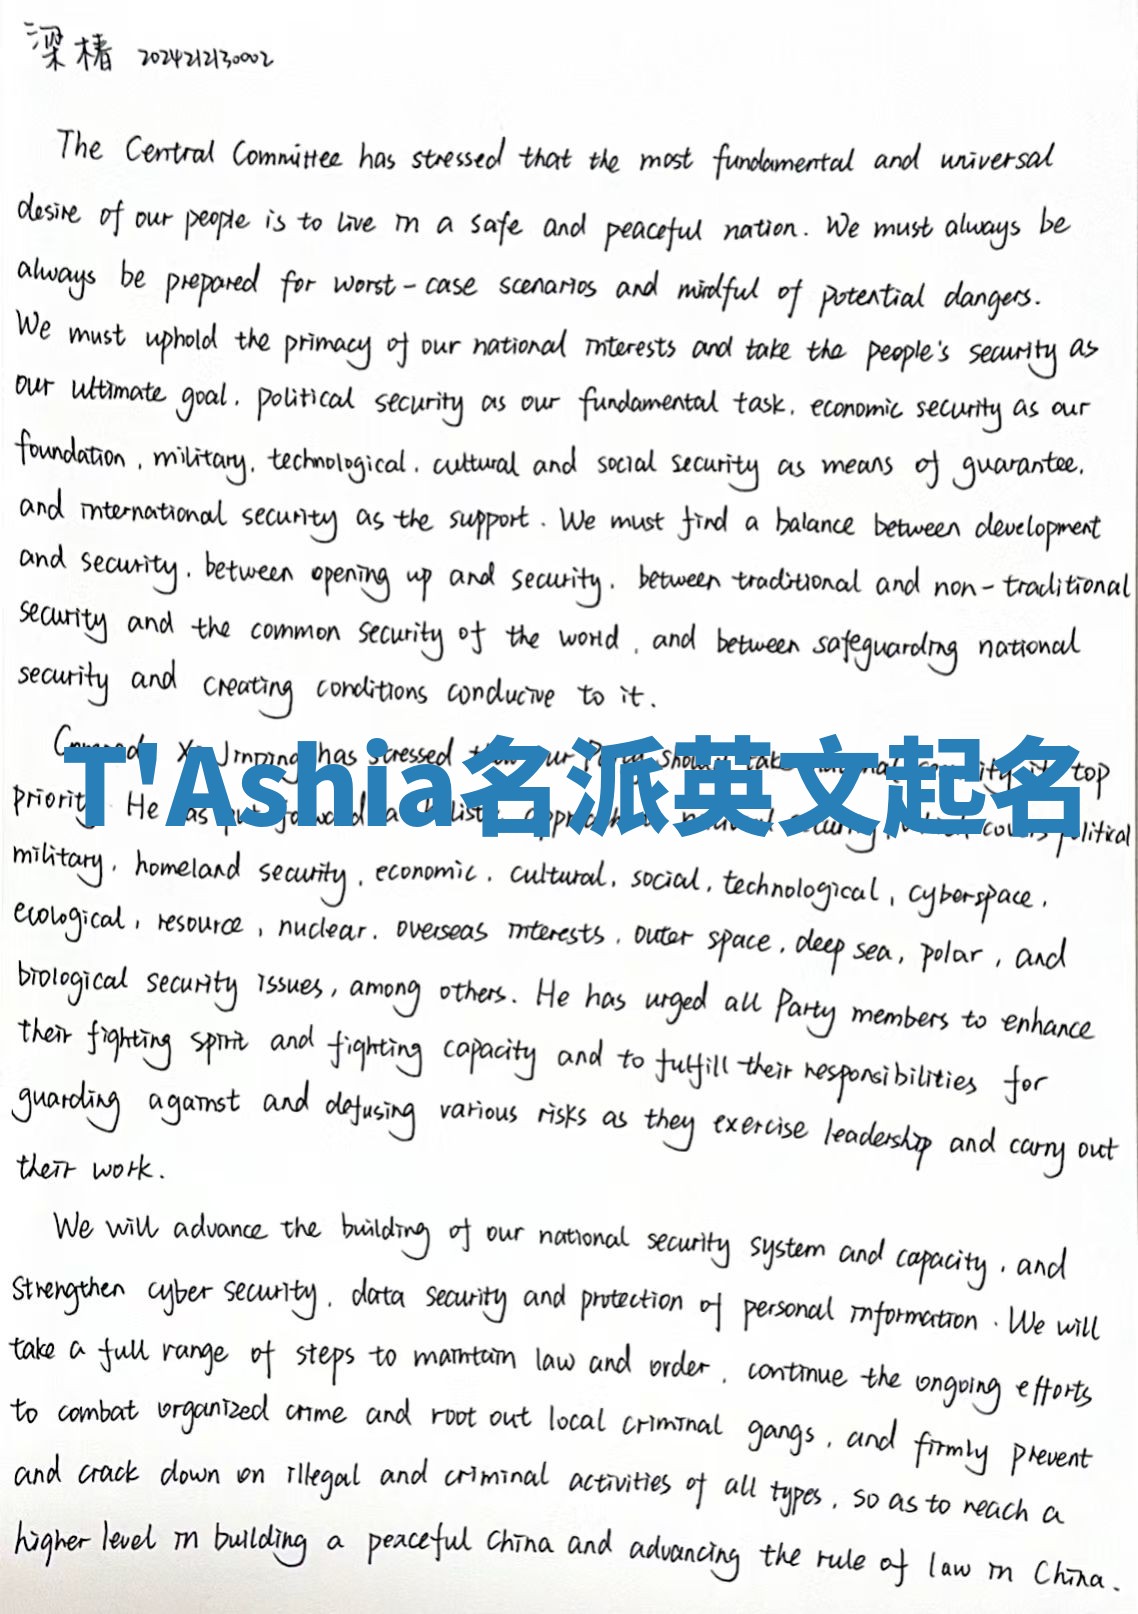 梁椿 2024212130002
The Central Committee has stressed that the most fundamental and universal
desire of our people is to live in a safe and peaceful nation. We must always be
always be prepared for worst-case scenarios and mindful of potential dangers.
We must uphold the primacy of our national interests and take the people's security as
our ultimate goal, political security as our fundamental task, economic security as our
foundation, military, technological, cultural and social security as means of guarantee,
and international security as the support. We must find a balance between development
and security, between opening up and security, between traditional and non-traditional
security and the common security of the world, and between safeguarding national
security and creating conditions conducive to it.
Jinping has stressed our top
T'Ashia名派英文起名
priority. He political
military, homeland security, economic, cultural, social, technological, cyberspace,
ecological, resource, nuclear, overseas interests, outer space, deep sea, polar, and
biological security issues, among others. He has urged all Party members to enhance
their fighting spirit and fighting capacity and to fulfill their responsibilities for
guarding against and defusing various risks as they exercise leadership and carry out
their work.
We will advance the building of our national security system and capacity, and
strengthen cyber security, data security and protection of personal information. We will
take a full range of steps to maintain law and order, continue the ongoing efforts
to combat organized crime and root out local criminal gangs, and firmly prevent
and crack down on illegal and criminal activities of all types, so as to reach a
higher level in building a peaceful China and advancing the rule of law in China.